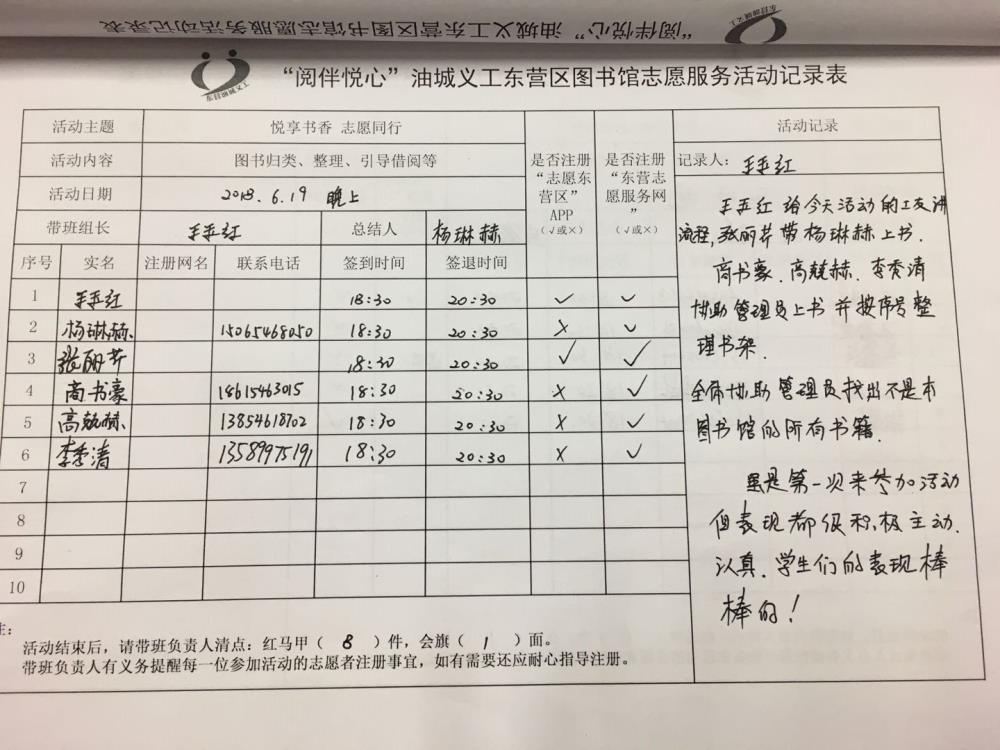 “阅伴悦心”油城义工东营区图书馆志愿服务活动记录表
东营油城义工
“阅伴悦心”油城义工东营区图书馆志愿服务活动记录表
活动主题 悦享书香 志愿同行
活动内容 图书归类、整理、引导借阅等
活动日期 2018.6.19 晚上
带班组长 王玉红 总结人 杨琳赫
是否注册“志愿东营区”APP（√或×）
是否注册“东营志愿服务网”（√或×）
序号 实名 注册网名 联系电话 签到时间 签退时间
1 王玉红 18:30 20:30 √ √
2 杨琳赫 15065468050 18:30 20:30 × √
3 张丽芹 18:30 20:30 √ √
4 商书豪 18615463015 18:30 20:30 × √
5 高兢赫 13854618702 18:30 20:30 × √
6 李秀清 13589975191 18:30 20:30 × √
7
8
9
10
活动记录
记录人：王玉红
王玉红给今天活动的工友讲
流程,张丽芹带杨琳赫上书.
商书豪、高兢赫、李秀清
协助管理员上书并按序号整
理书架.
全体协助管理员找出不是本
图书馆的所有书籍.
虽是第一次来参加活动
但表现都很积极主动.
认真.学生们的表现棒
棒的!
注：
活动结束后，请带班负责人清点：红马甲（ 8 ）件，会旗（ 1 ）面。
带班负责人有义务提醒每一位参加活动的志愿者注册事宜，如有需要还应耐心指导注册。